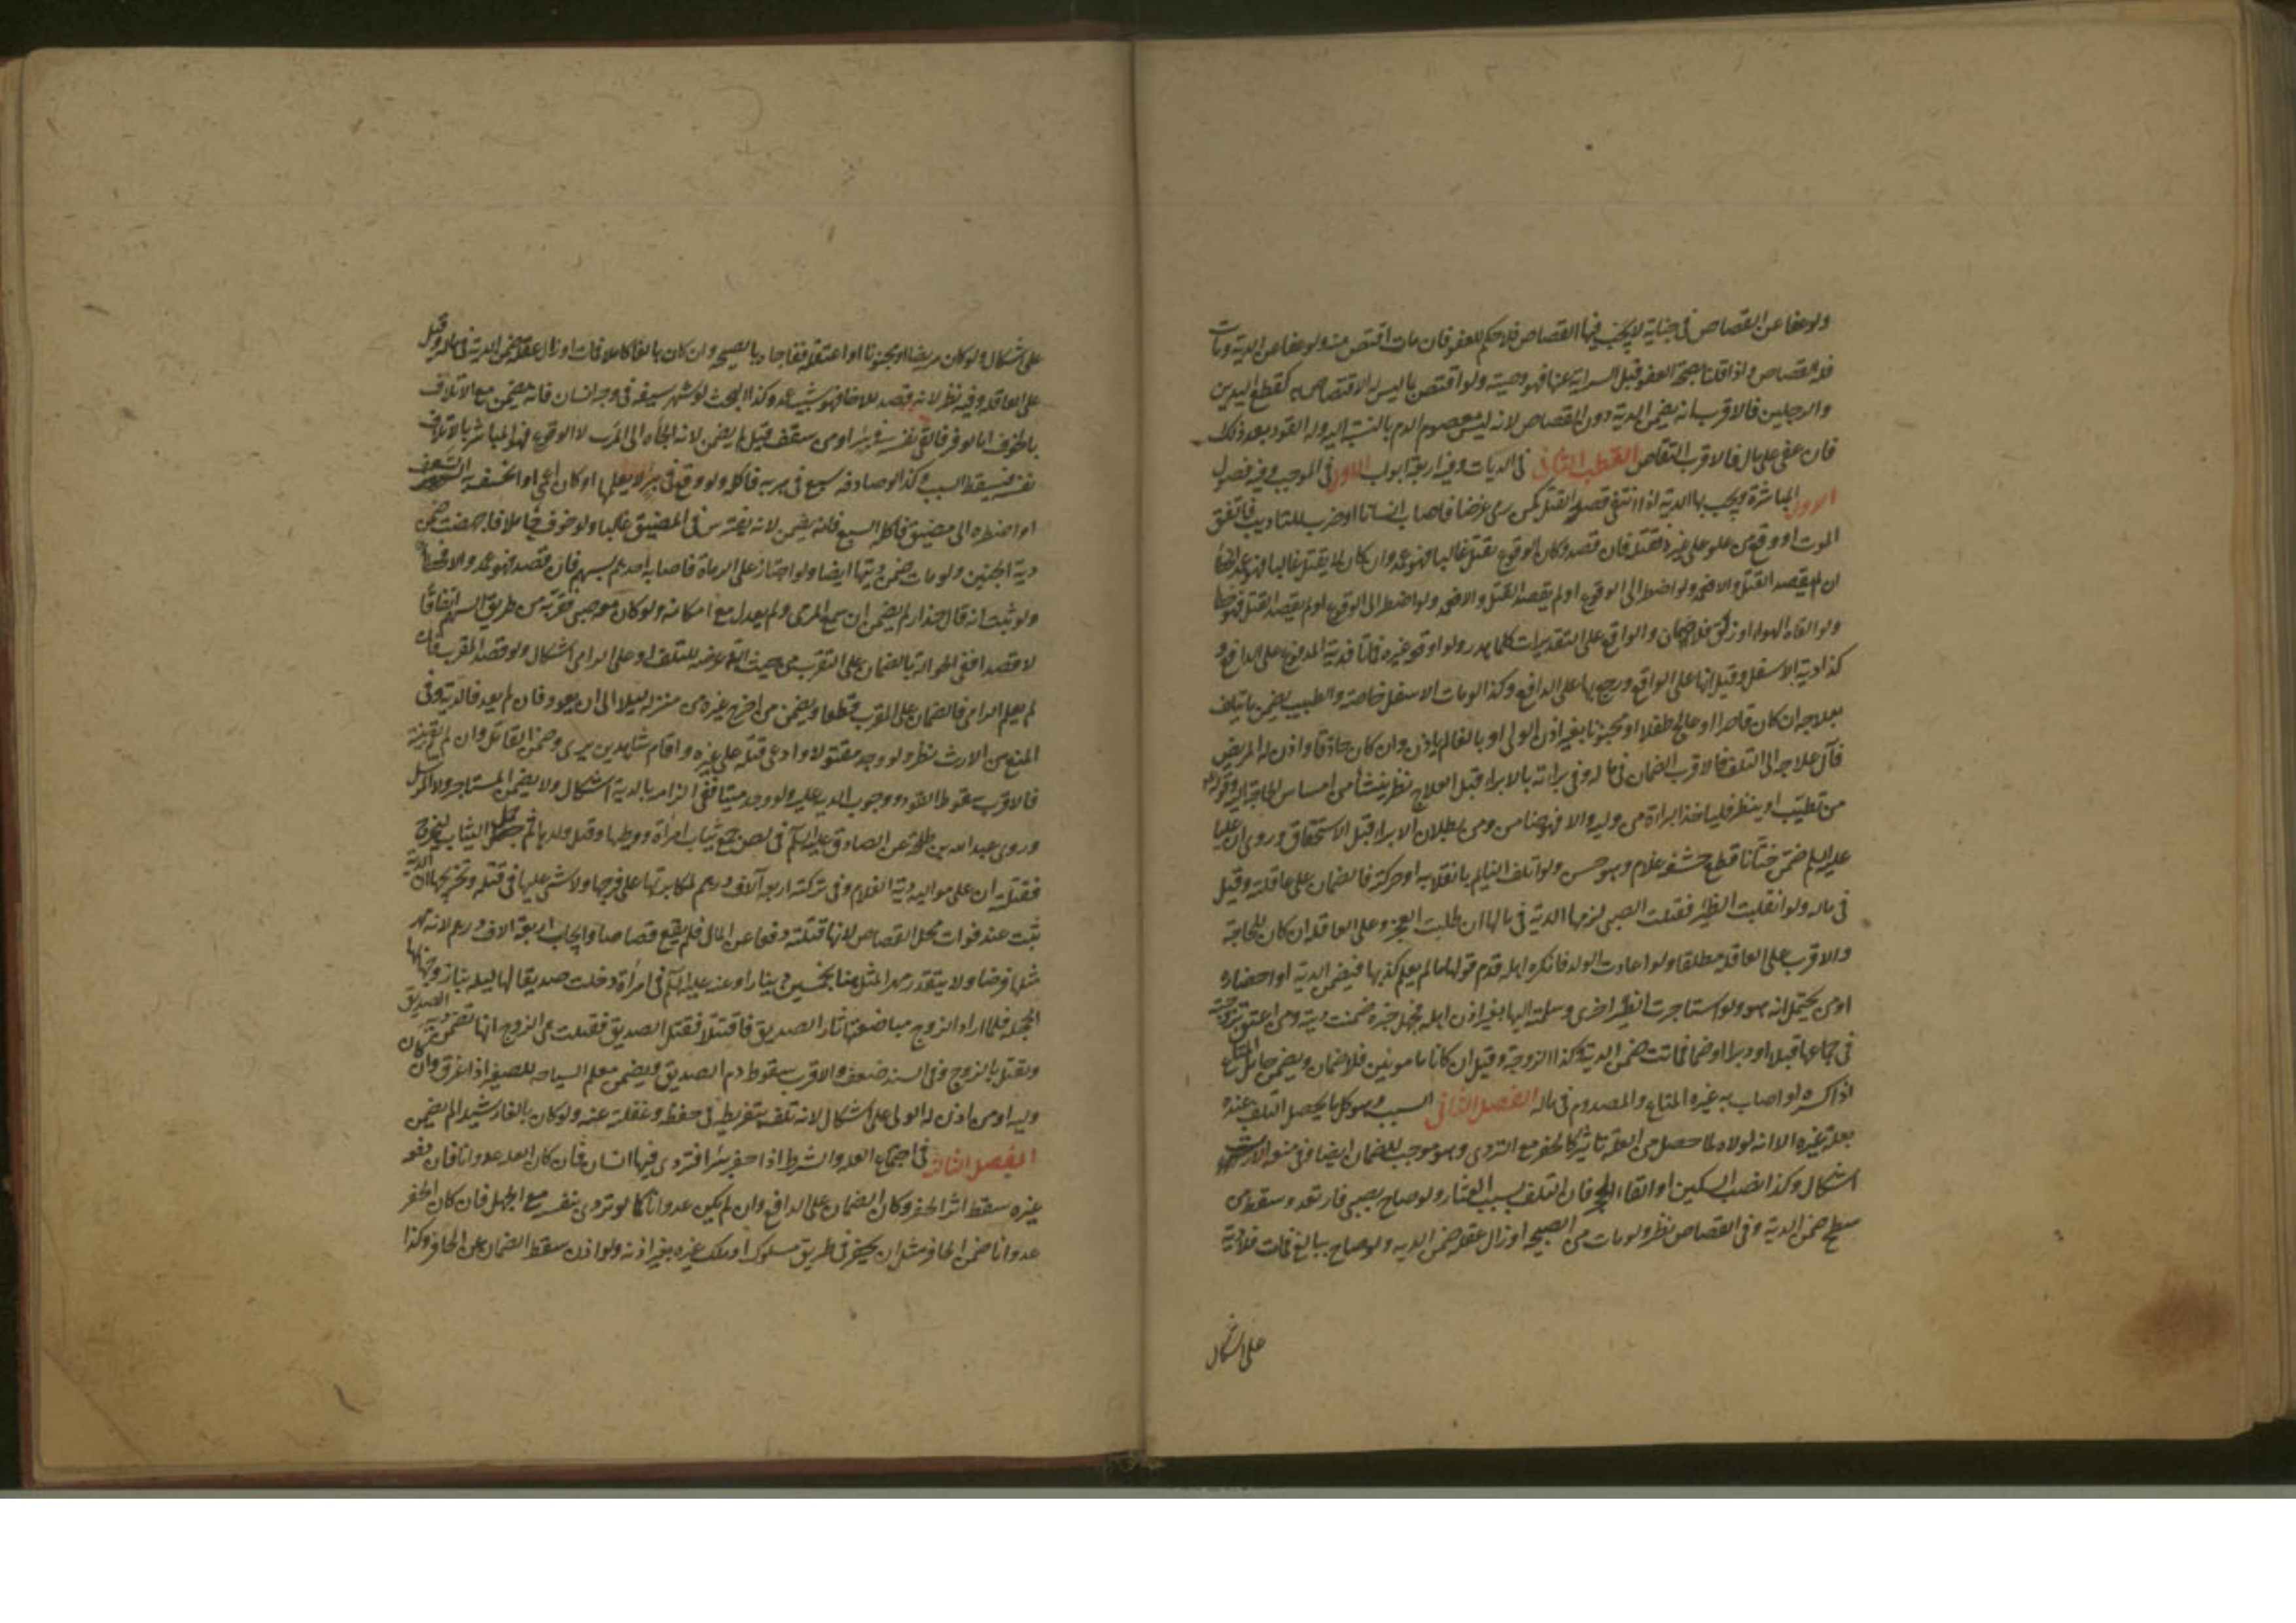 ولو عفا عن القصاص في جناية لا يجب فيها القصاص فلا حكم للعفو فان مات اقتص منه ولو عفا عن الدية ومات
فله القصاص واذا قلنا بصحة العفو قبل السراية عنها فهو وصية ولو اقتص بما ليس له الاقتصاص به كقطع اليدين
والرجلين فالاقرب انه يضمن الدية دون القصاص لانه ليس معصوم الدم بالنسبة اليه وله القود بعد ذلك
فان عفى على مال فالاقرب التقاص القطب الثاني في الديات وفيه اربعة ابواب الاول في الموجب وفيه فصول
الاول المباشرة ويجب بها الدية اذا انتفى قصد القتل كمن رمى غرضا فاصاب انسانا او ضرب للتاديب فاتفق
الموت او وقع من علو على غيره فقتله فان قصد وكان الوقوع يقتل غالبا فهو عمد وان كان لا يقتل غالبا فهو عمد الخطا
ان لم يقصد القتل والا فعمد ولو اضطر الى الوقوع او لم يقصد القتل والا فعمد ولو اضطر الى الوقوع او لم يقصد القتل فهو خطا
ولو القاه الهواء او زلق فلا ضمان والواقع على التقديرات كلها هدر ولو اوقعه غيره فماتا فدية المدفوع على الدافع و
كذا دية الاسفل وقيل انها على الواقع ويرجع بها على الدافع وكذا لو مات الاسفل خاصة والطبيب يضمن ما يتلف
بعلاجه ان كان قاصرا او عالج طفلا او مجنونا بغير اذن الولي او بالغا لم ياذن وان كان حاذقا واذن له المريض
فآل علاجه الى التلف فالاقرب الضمان في ماله وفي براته بالابراء قبل العلاج نظر ينشأ من امساس الحاجة اليه وقوله
من تطبب او بيطر فلياخذ البراءة من وليه والا فهو ضامن ومن بطلان الابراء قبل الاستحقاق وروى ان عليا
عليه السلم ضمن ختانا قطع حشفة غلام وهو حسن ولو اتلف النايم بانقلابه او حركته فالضمان على عاقلته وقيل
في ماله ولو انقلبت الظئر فقتلت الصبي لزمها الدية في مالها ان طلبت الفخر وعلى العاقلة ان كان للحاجة
والاقرب على العاقلة مطلقا ولو اعادت الولد فانكره اهله قدم قولها ما لم يعلم كذبها فيضمن الدية او احضاره
او من يحتمل انه هو ولو استاجرت الظئر اخرى وسلمته اليها بغير اذن اهله فجهل خبره ضمنت ديته ومن اعنق بزوجته
في جماعها قبلا او دبرا او ضما فماتت ضمن الدية وكذا الزوجة وقيل ان كانا مامونين فلا ضمان ويضمن حامل المتاع
اذا كسره او اصاب به غيره المتاع والمصدوم في ماله الفصل الثاني السبب وهو كل ما يحصل التلف عنده
بعلة غيره الا انه لولاه لما حصل من العلة تاثير كالحفر مع التردي وهو موجب للضمان ايضا وفي منعه الارث
اشكال وكذا نصب السكين او القاء الحجر فان التلف بسبب العثار ولو صاح بصبي فارتعد وسقط من
سطح ضمن الدية وفي القصاص نظر ولو مات من الصيحة او زال عقله ضمن الدية ولو صاح ببالغ فمات فلا دية
على اشكال
على اشكال ولو كان مريضا او مجنونا او اغتفله ففاجاه بالصيحة وان كان بالغا كاملا فمات او زال عقله ضمن الدية في ماله وقيل
على العاقلة وفيه نظر لانه قصد للاخافة فهو شبيه عمد وكذا البحث لو شهر سيفه في وجه انسان فانه يضمن مع الاتلاف
بالخوف اما لو فر فالقى نفسه في بئر او من سقف قيل لم يضمن لانه الجأه الى الهرب لا الوقوع فهو المباشر باتلاف
نفسه فيسقط السبب وكذا لو صادفه سبع في هربه فاكله ولو وقع في بئر لا يعلمها او كان اعمى او انخسف به السقف
او اضطره الى مضيق فاكله السبع فانه يضمن لانه يفترس في المضيق غالبا ولو خوف حاملا فاجهضت ضمن
دية الجنين ولو ماتت ضمن ديتها ايضا ولو اجتاز على الرماة فاصابه احدهم بسهم فان قصد فهو عمد والا فخطا
ولو ثبت انه قال حذار لم يضمن ان سمع المرمى ولم يعدل مع امكانه ولو كان معه صبي فقربه من طريق السهم اتفاقا
لا قصدا ففي الحوالة بالضمان على المقرب من حيث انه عرضه للتلف او على الرامي اشكال ولو قصد المقرب ذلك
لم يعلم الرامي فالضمان على المقرب قطعا ويضمن من اخرج غيره من منزله ليلا الى ان يعود فان لم يعد فالدية وفي
المنع من الارث نظر ولو وجد مقتولا وادعى قتله على غيره واقام شاهدين برئ وضمن القاتل وان لم يقم بينة
فالاقرب سقوط القود ووجوب الدية عليه ولو وجد ميتا ففي الزامه بالدية اشكال ولا يضمن المستاجر ولا المرسل
وروى عبد الله بن طلحة عن الصادق عليه السلم في لص جمع ثياب امرأة ووطيها وقتل ولدها ثم حمل الثياب ليخرج
فقتلته ان على مواليه دية الغلام وفي تركته اربعة آلاف درهم لمكابرتها على فرجها ولا شئ عليها في قتله وتخريجها ان الدية
ثبتت عند فوات محل القصاص لانها قتلته دفعا عن المال فلم يقع قصاصا وايجاب اربعة الاف درهم لانه مهر
مثلها فرضا ولا يتقدر مهر المثل هنا بخمسين دينارا وعنه عليه السلم في امرأة دخلت صديقا لها ليلة بنا زوجها بها
الحجلة فلما اراد الزوج مباضعتها ثار الصديق فاقتتلا فقتل الصديق فقتلت هي الزوج انها تضمن دية الصديق
وتقتل بالزوج وفي السند ضعف والاقرب سقوط دم الصديق ويضمن معلم السباحة للصغير اذا غرق وان كان
وليه او من ياذن له الولي على اشكال لانه تلف بتفريطه في حفظه وغفلته عنه ولو كان بالغا رشيدا لم يضمن
الفصل الثالث في اجتماع العلة والشرط اذا حفر بئرا فتردى فيها انسان فان كان العلة عدوانا فان دفعه
غيره سقط اثر الحفر وكان الضمان على الدافع وان لم يكن عدوانا كما لو تردى بنفسه مع الجهل فان كان الحفر
عدوانا ضمن الحافر مثل ان يحفر في طريق مسلوك او ملك غيره بغير اذنه ولو اذن سقط الضمان عن الحافر وكذا